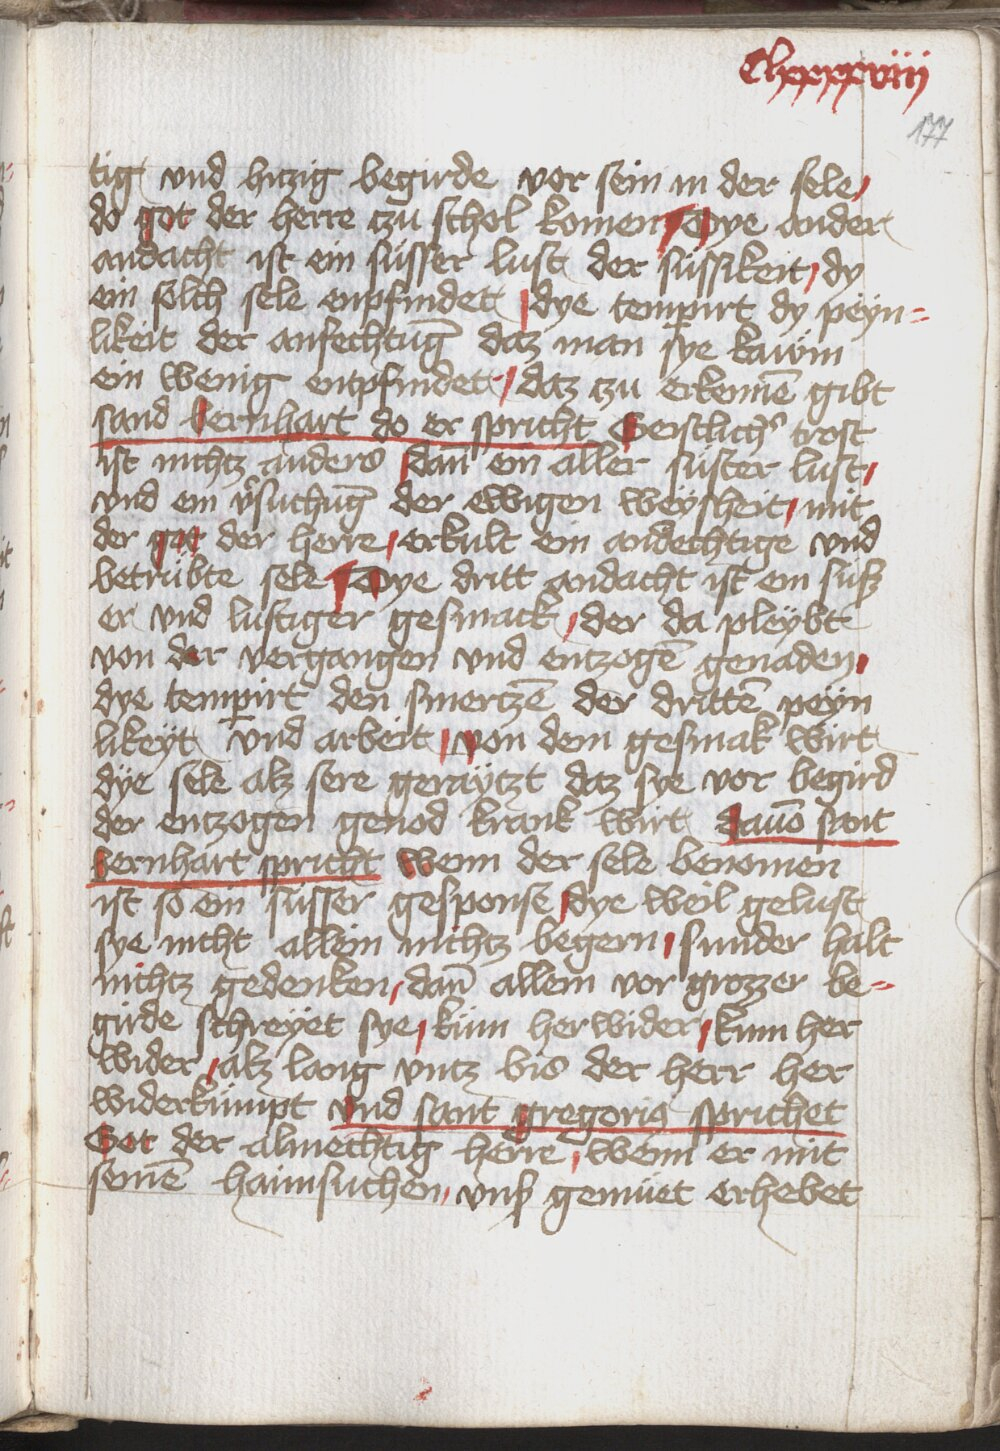 Clxxxxviii
177
tig vnd hitzig begirde vor sein in der sele /
do got der herre czu schol komen Dye ander
andacht ist ein süsser lust der süssikeit / dy
ein solch sele enpfindet / dye temperirt dy peyn=
likeit der anfechtu̅g daz man sye kawm
ein wenig entpfindet / daz czu erkenne̅ gibt
sand bernhart do er spricht Geistlich's trost
ist nichtz anders dan̅ ein aller süster lust /
vnd ein v'suchu̅g der ewigen weysheit / mit
der got der herre / erkult ein andechtige vnd
betrübte sele Dye dritt andacht ist ein süß
er vnd lustiger gesmack / der da pleybt
von der vergangen vnd entzoge̅ genaden /
dye temperirt den smertze̅ der dritte̅ peyn
likeyt vnd arbeit / von dem gesmak wirt
dye sele alz sere geraytzt daz sye vor begird
der entzogen genod krank wirt dauo̅ sant
bernhart spricht Wenn der sele benomen
ist so ein süsser gesponse / dye weil gelust
sye nicht allein nichtz begern / sunder halt
nichtz gedenken / dan̅ allein vor grozzer be=
girde schreyet sye / kum herwider / kum her
wider / alz lang vntz bis der herr her
widerkumpt vnd sant gregoris sprichet
Got der almechtig herre / wenn er mit
seine̅ haimsuchen / vnß gemüet erhebet